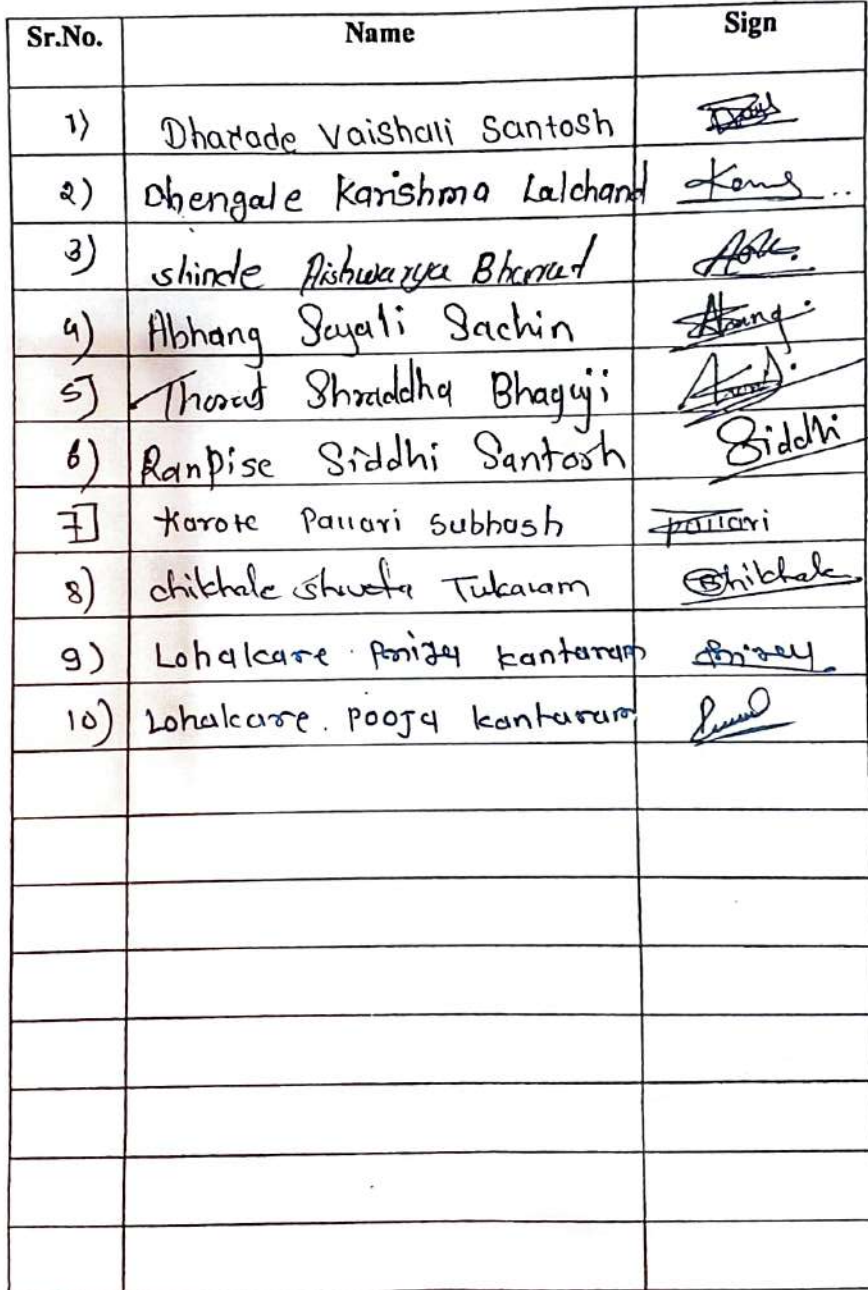 Sr.No. Name Sign
1) Dharade Vaishali Santosh
2) Dhengale Karishma Lalchand
3) shinde Aishwarya Bharat
4) Abhang Sayali Sachin
5] Thorat Shraddha Bhaguji
6) Ranpise Siddhi Santosh Siddhi
7] Karote Pallavi subhash pallavi
8) chikhale shweta Tukaram Chikhale
9) Lohakare kantaram
10) Lohakare. Pooja kantaram